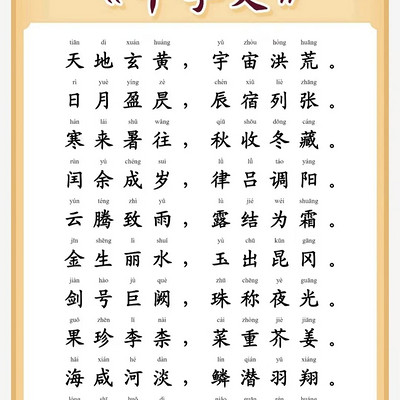 《千字文》
tiān dì xuán huáng yǔ zhòu hóng huāng
天地玄黄，宇宙洪荒。
rì yuè yíng zè chén xiù liè zhāng
日月盈昃，辰宿列张。
hán lái shǔ wǎng qiū shōu dōng cáng
寒来暑往，秋收冬藏。
rùn yú chéng suì lǜ lǚ tiáo yáng
闰余成岁，律吕调阳。
yún téng zhì yǔ lù jié wéi shuāng
云腾致雨，露结为霜。
jīn shēng lì shuǐ yù chū kūn gāng
金生丽水，玉出昆冈。
jiàn hào jù què zhū chēng yè guāng
剑号巨阙，珠称夜光。
guǒ zhēn lǐ nài cài zhòng jiè jiāng
果珍李柰，菜重芥姜。
hǎi xián hé dàn lín qián yǔ xiáng
海咸河淡，鳞潜羽翔。